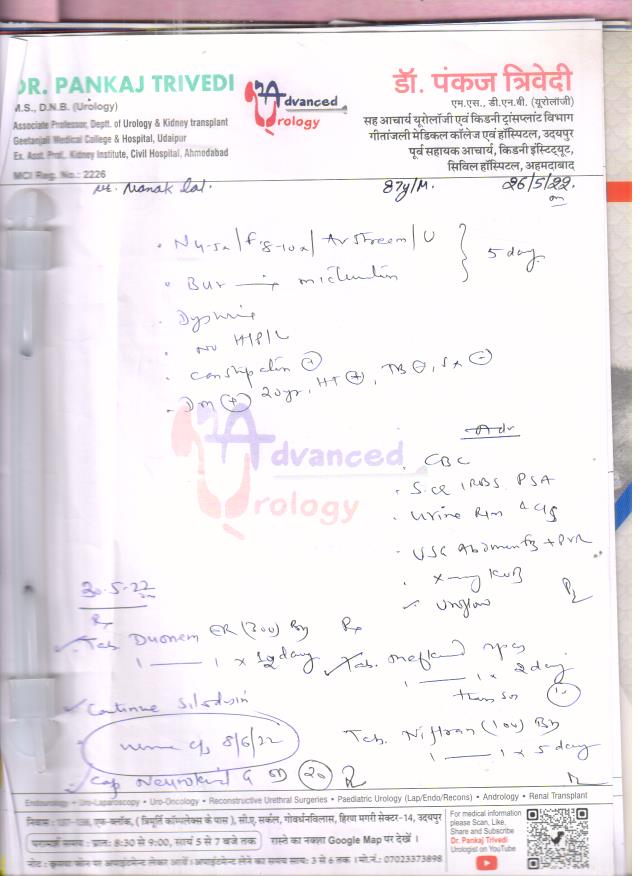 DR. PANKAJ TRIVEDI
M.S., D.N.B. (Urology)
Associate Professor, Deptt. of Urology & Kidney transplant
Geetanjali Medical College & Hospital, Udaipur
Ex. Asst. Prof., Kidney Institute, Civil Hospital, Ahmedabad
MCI Reg. No.: 2226
Advanced
Urology
डॉ. पंकज त्रिवेदी
एम.एस., डी.एन.बी. (यूरोलॉजी)
सह आचार्य यूरोलॉजी एवं किडनी ट्रांसप्लांट विभाग
गीतांजली मेडिकल कॉलेज एवं हॉस्पिटल, उदयपुर
पूर्व सहायक आचार्य, किडनी इंस्टिट्यूट,
सिविल हॉस्पिटल, अहमदाबाद
Mr. Manak Lal. 87y/M. 26/5/22
5 day
Dysuria
Constipation +
DM + 20yr, HT +, TB -, Sx -
Advanced
Urology
Adv
CBC
S.Cr RBS PSA
Urine R/m & c/s
USG Abdomen + PVR
X-ray KUB
Uroflow
30.5.22
Rx
Tab. Duonem ER (300) BD
1 — 1 x
1 — 1 x 2 day
then SOS
Continue Silodosin
Urine c/s 8/6/22
Tab. Niftran (100) BD
1 — 1 x 5 day
Cap Neurokind G OD 20
Endourology • Uro-Laparoscopy • Uro-Oncology • Reconstructive Urethral Surgeries • Paediatric Urology (Lap/Endo/Recons) • Andrology • Renal Transplant
एफ-ब्लॉक, (त्रिमूर्ति कॉम्पलेक्स के पास), सी.ए. सर्कल, गोवर्धनविलास, हिरण मगरी सेक्टर-14, उदयपुर
परामर्श समय : प्रातः 8:30 से 9:00, सायं 5 से 7 बजे तक रास्ते का नक्शा Google Map पर देखें ।
नोट : कृपया फोन पर अपाईंटमेन्ट लेकर आवें । अपाईंटमेन्ट लेने का समय सायं: 3 से 6 तक । मो.नं.: 07023373898
For medical information
please Scan, Like,
Share and Subscribe
Dr. Pankaj Trivedi
Urologist on YouTube